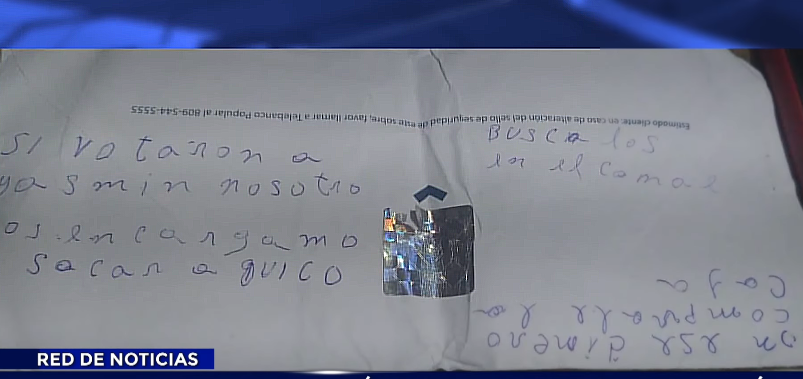 Estimado cliente: en caso de alteración del sello de seguridad de este sobre, favor llamar a Telebanco Popular al 809-544-5555
SI votaron a
yasmin nosotro
os.encargamo
sacar a quico
Busca los
en el
on ese dinero
la
caja
RED DE NOTICIAS